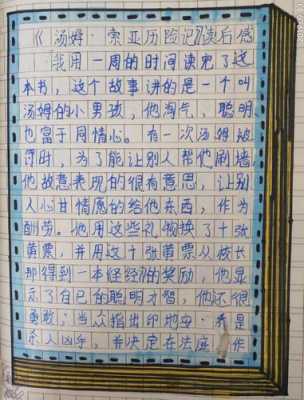 《汤姆·索亚历险记》读后感
我用一周的时间读完了这
本书，这个故事讲的是一个叫
汤姆的小男孩，他淘气，聪明
也富于同情心。有一次汤姆被
罚时，为了能让别人帮他刷墙，
他故意表现的很有意思，让别
人心甘情愿的给他东西，作为
酬劳。他用这些礼物换了十张
黄票，并用这十张黄票从校长
那得到一本经经的奖励，他显
示了自己的聪明才智，他还很
勇敢；当众指出印地安·乔是
杀人凶手，并决定在法庭 作